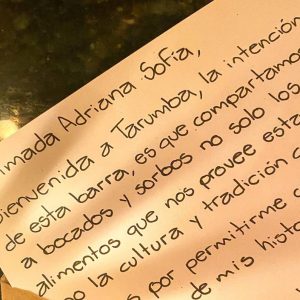 imada Adriana Sofia,
Bienvenida a Tarumba, la intención
de esta barra, es que compartamos
a bocados y sorbos no solo los
alimentos que nos provee esta
o la cultura y tradición
s por permitirme
de mis histo